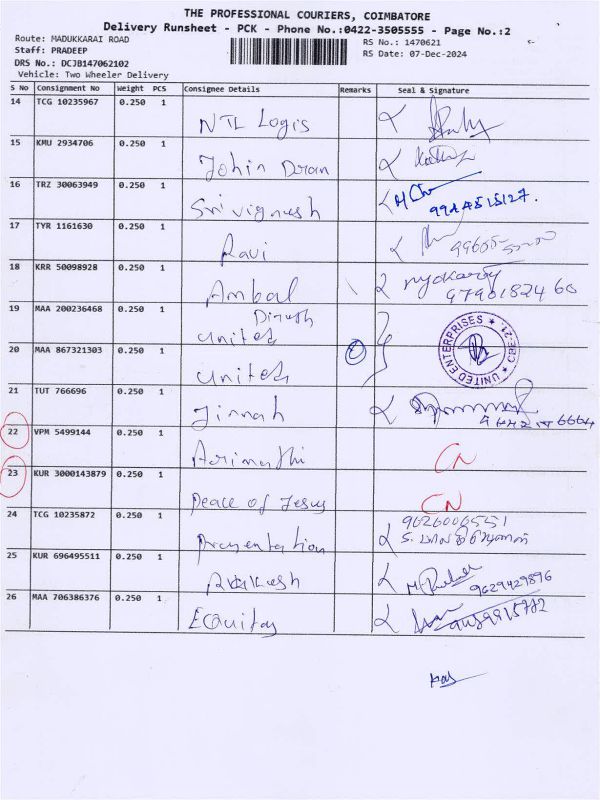 THE PROFESSIONAL COURIERS, COIMBATORE
Delivery Runsheet - PCK - Phone No.:0422-3505555 - Page No.:2
Route: MADUKKARAI ROAD
RS No.: 1470621
Staff: PRADEEP
RS Date: 07-Dec-2024
DRS No.: DCJB147062102
Vehicle: Two Wheeler Delivery
S No Consignment No Weight PCS Consignee Details Remarks Seal & Signature
14 TCG 10235967 0.250 1 NTL Logis
15 KMU 2934706 0.250 1
16 TRZ 30063949 0.250 1 Sri vignesh
17 TYR 1161630 0.250 1 Ravi
18 KRR 50098928 0.250 1 Ambal 9790182460
19 MAA 200236468 0.250 1 Dinesh United
UNITED ENTERPRISES ★ CBE-21. ★
20 MAA 867321303 0.250 1 United
21 TUT 766696 0.250 1 Jinnah
22 VPM 5499144 0.250 1 CN
23 KUR 3000143879 0.250 1 Peace of Jesus CN
24 TCG 10235872 0.250 1 9626006551
25 KUR 696495511 0.250 1 9629429896
26 MAA 706386376 0.250 1 Equitas